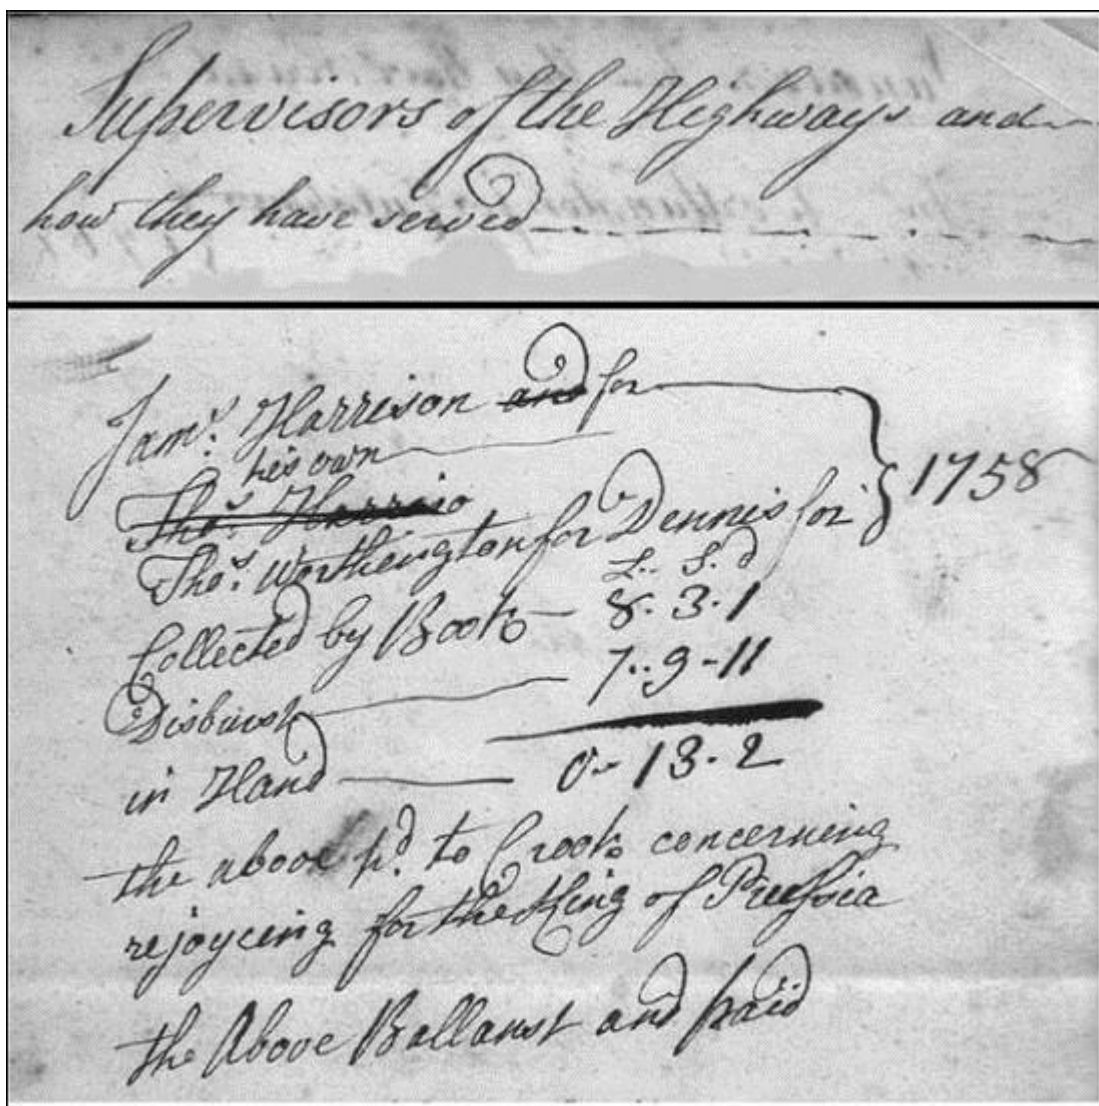 Supervisors of the Highways and
how they have served
Jam.s Harrison and for
his own
Tho.s Harriso
Tho.s Worthington for Dennis for
1758
L.. S. d
Collected by Book 8. 3. 1
Disburst 7.. 9 - 11
in Hand 0 - 13. 2
the above p.d to Crook concerning
rejoyceing for the King of Prussia
the Above Ballanst and paid